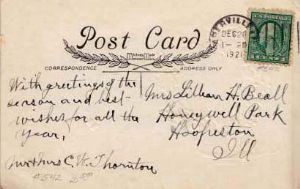 Post Card
CORRESPONDENCE
ADDRESS ONLY
DEC 20
1921
With greetings of the
season and best
wishes for all the
year,
Mr & Mrs C. W. Thornton
Mrs Lillian H. Beall
Honeywell Park
Hoopeston
Ill